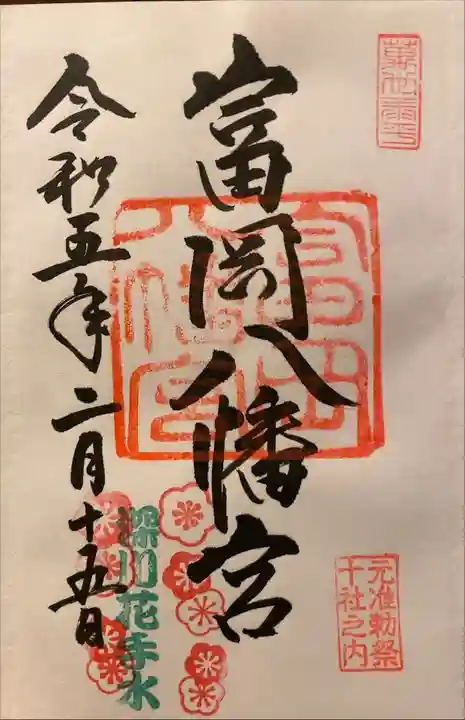 富岡八幡宮
元准勅祭
十社之内
深川花手水
令和五年二月十五日